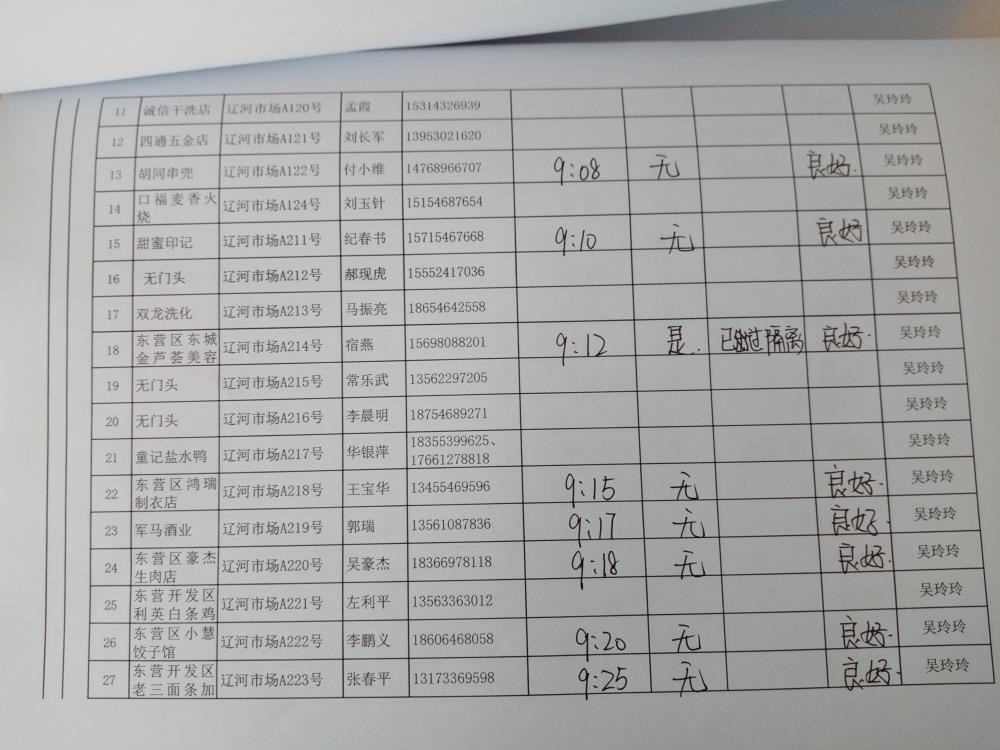 11 诚信干洗店 辽河市场A120号 孟霞 15314326939 吴玲玲
12 四通五金店 辽河市场A121号 刘长军 13953021620 吴玲玲
13 胡同串兜 辽河市场A122号 付小维 14768966707 9:08 无 良好. 吴玲玲
14 口福麦香火 辽河市场A124号 刘玉针 15154687654 吴玲玲
烧
15 甜蜜印记 辽河市场A211号 纪春书 15715467668 9:10 无 良好 吴玲玲
16 无门头 辽河市场A212号 郝现虎 15552417036 吴玲玲
17 双龙洗化 辽河市场A213号 马振亮 18654642558 吴玲玲
18 东营区东城 辽河市场A214号 宿燕 15698088201 9:12 是. 已 过隔离 良好. 吴玲玲
金芦荟美容
19 无门头 辽河市场A215号 常乐武 13562297205 吴玲玲
20 无门头 辽河市场A216号 李晨明 18754689271 吴玲玲
21 童记盐水鸭 辽河市场A217号 华银萍 18355399625、 吴玲玲
17661278818
22 东营区鸿瑞 辽河市场A218号 王宝华 13455469596 9:15 无 良好. 吴玲玲
制衣店
23 军马酒业 辽河市场A219号 郭瑞 13561087836 9:17 无 良好. 吴玲玲
24 东营区豪杰 辽河市场A220号 吴豪杰 18366978118 9:18 无 良好. 吴玲玲
生肉店
25 东营开发区 辽河市场A221号 左利平 13563363012 吴玲玲
利英白条鸡
26 东营区小慧 辽河市场A222号 李鹏义 18606468058 9:20 无 良好. 吴玲玲
饺子馆
27 东营开发区 辽河市场A223号 张春平 13173369598 9:25 无 良好. 吴玲玲
老三面条加